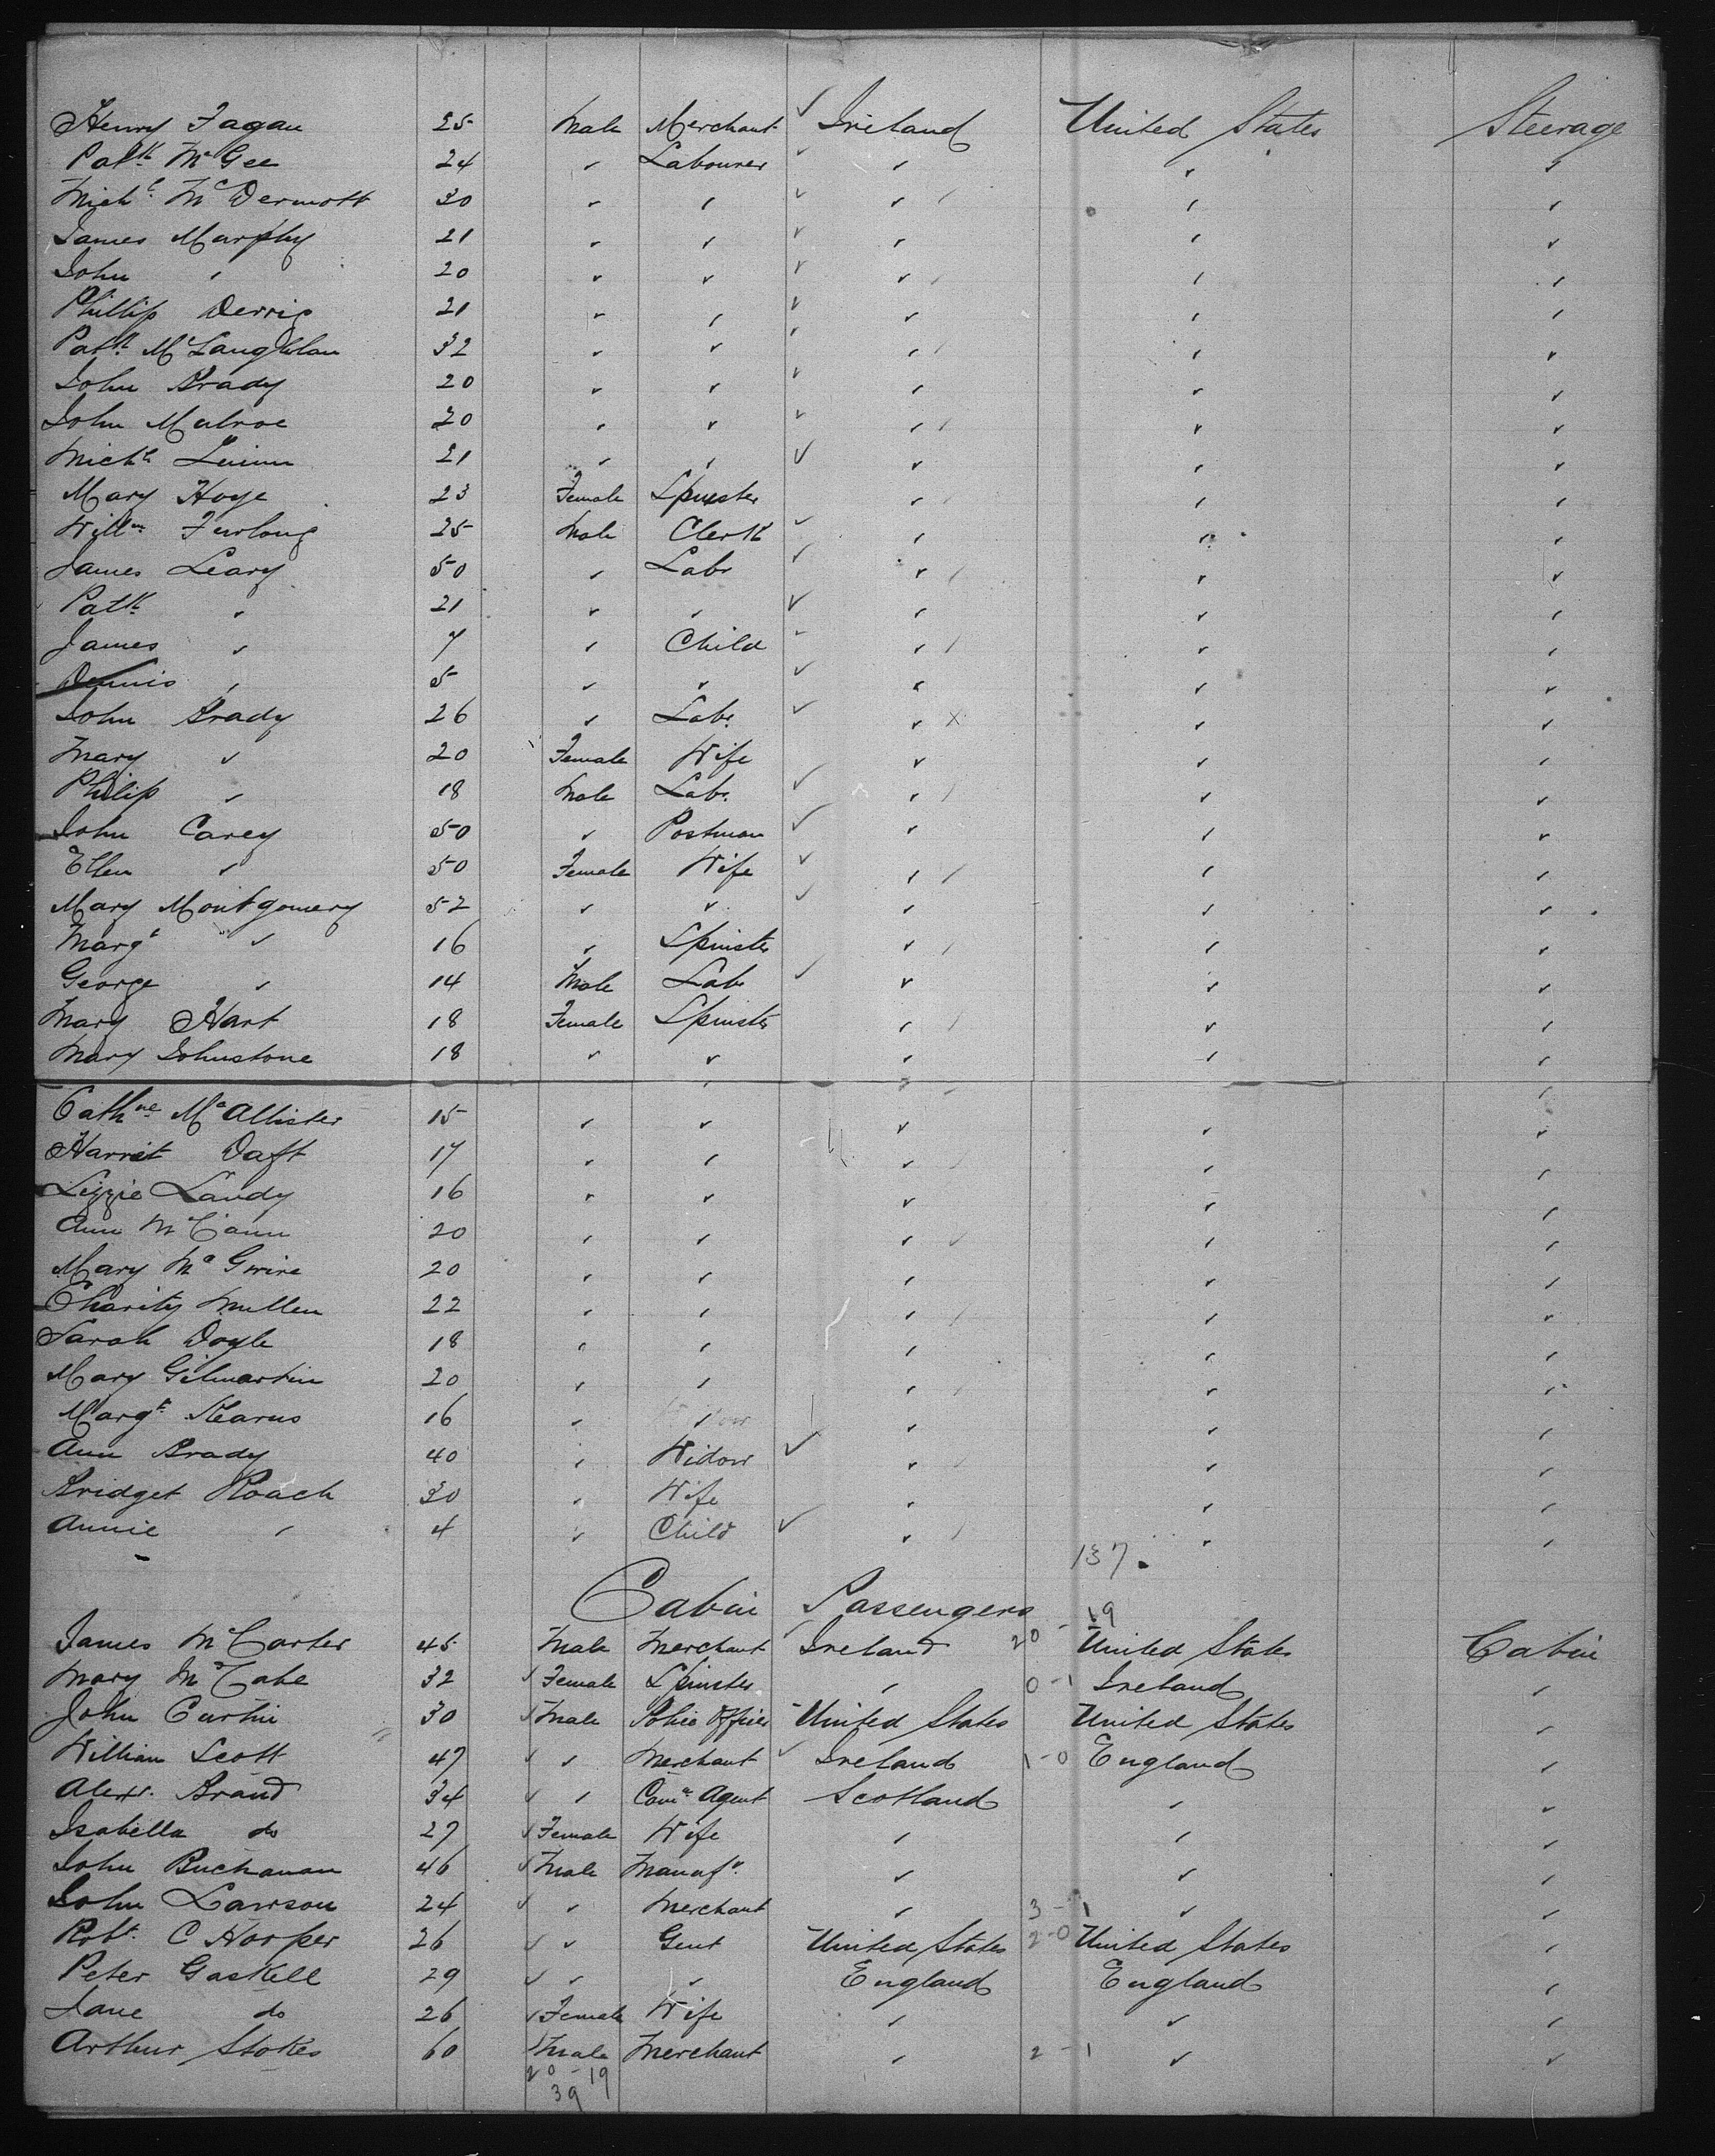 Henry Fagan 25 Male Merchant ✓ Ireland United States Steerage
Patk McGee 24 " Labourer " " "
Michl McDermott 30 " " " " "
James Murphy 21 " " " " "
John " 20 " " " " "
Phillip Derrig 21 " " " " "
Patk McLaughlan 32 " " " " "
John Brady 20 " " " " "
John Mulroe 20 " " " " "
Michl 21 " " ✓ " " "
Mary Hoye 23 Female Spinster " " "
Willm Furlong 25 Male Clerk " " "
James Leary 50 " Labr " " "
Patk " 21 " " " " "
James " 7 " Child " " "
Dennis " 5 " " " " "
John Brady 26 " Labr " x " "
Mary " 20 Female Wife " " "
Philip " 18 Male Labr " " "
John Carey 50 " Postman " " "
Ellen " 50 Female Wife " " "
Mary Montgomery 52 " " " " "
Margt " 16 " Spinster " " "
George " 14 Male Labr " " "
Mary Hart 18 Female Spinster " " "
Mary Johnstone 18 " " " " "
Cathne McAllister 15 " " " " "
Harriet Daft 17 " " " " "
Lizzie Landy 16 " " " " "
Ann McCann 20 " " " " "
Mary McGwire 20 " " " " "
Charity Mullen 22 " " " " "
Sarah Doyle 18 " " " " "
Mary Gilmartin 20 " " " " "
Margt Kearns 16 " " " " "
Ann Brady 40 " Widow ✓ " " "
Bridget Roach 30 " Wife " " "
Annie " 4 " Child ✓ " " "
137.
Cabin Passengers
20 - 19
James McCarter 45 Male Merchant Ireland United States Cabin
Mary McCabe 32 Female Spinster " 0 - 1 Ireland "
John Curtin 30 Male Police Officer United States United States "
William Scott 47 " Merchant Ireland 1 - 0 England "
Alexr. Brand 34 " Comn Agent Scotland " "
Isabella do 27 Female Wife " " "
John Buchanan 46 Male Manufr " " "
John Lawson 24 " Merchant " 3 - 1 " "
Robt. C Harper 26 " Gent United States 2 - 0 United States "
Peter Gaskell 29 " " England England "
Jane do 26 Female Wife " " "
Arthur Stokes 60 Male Merchant " 2 - 1 " "
20 - 19
39